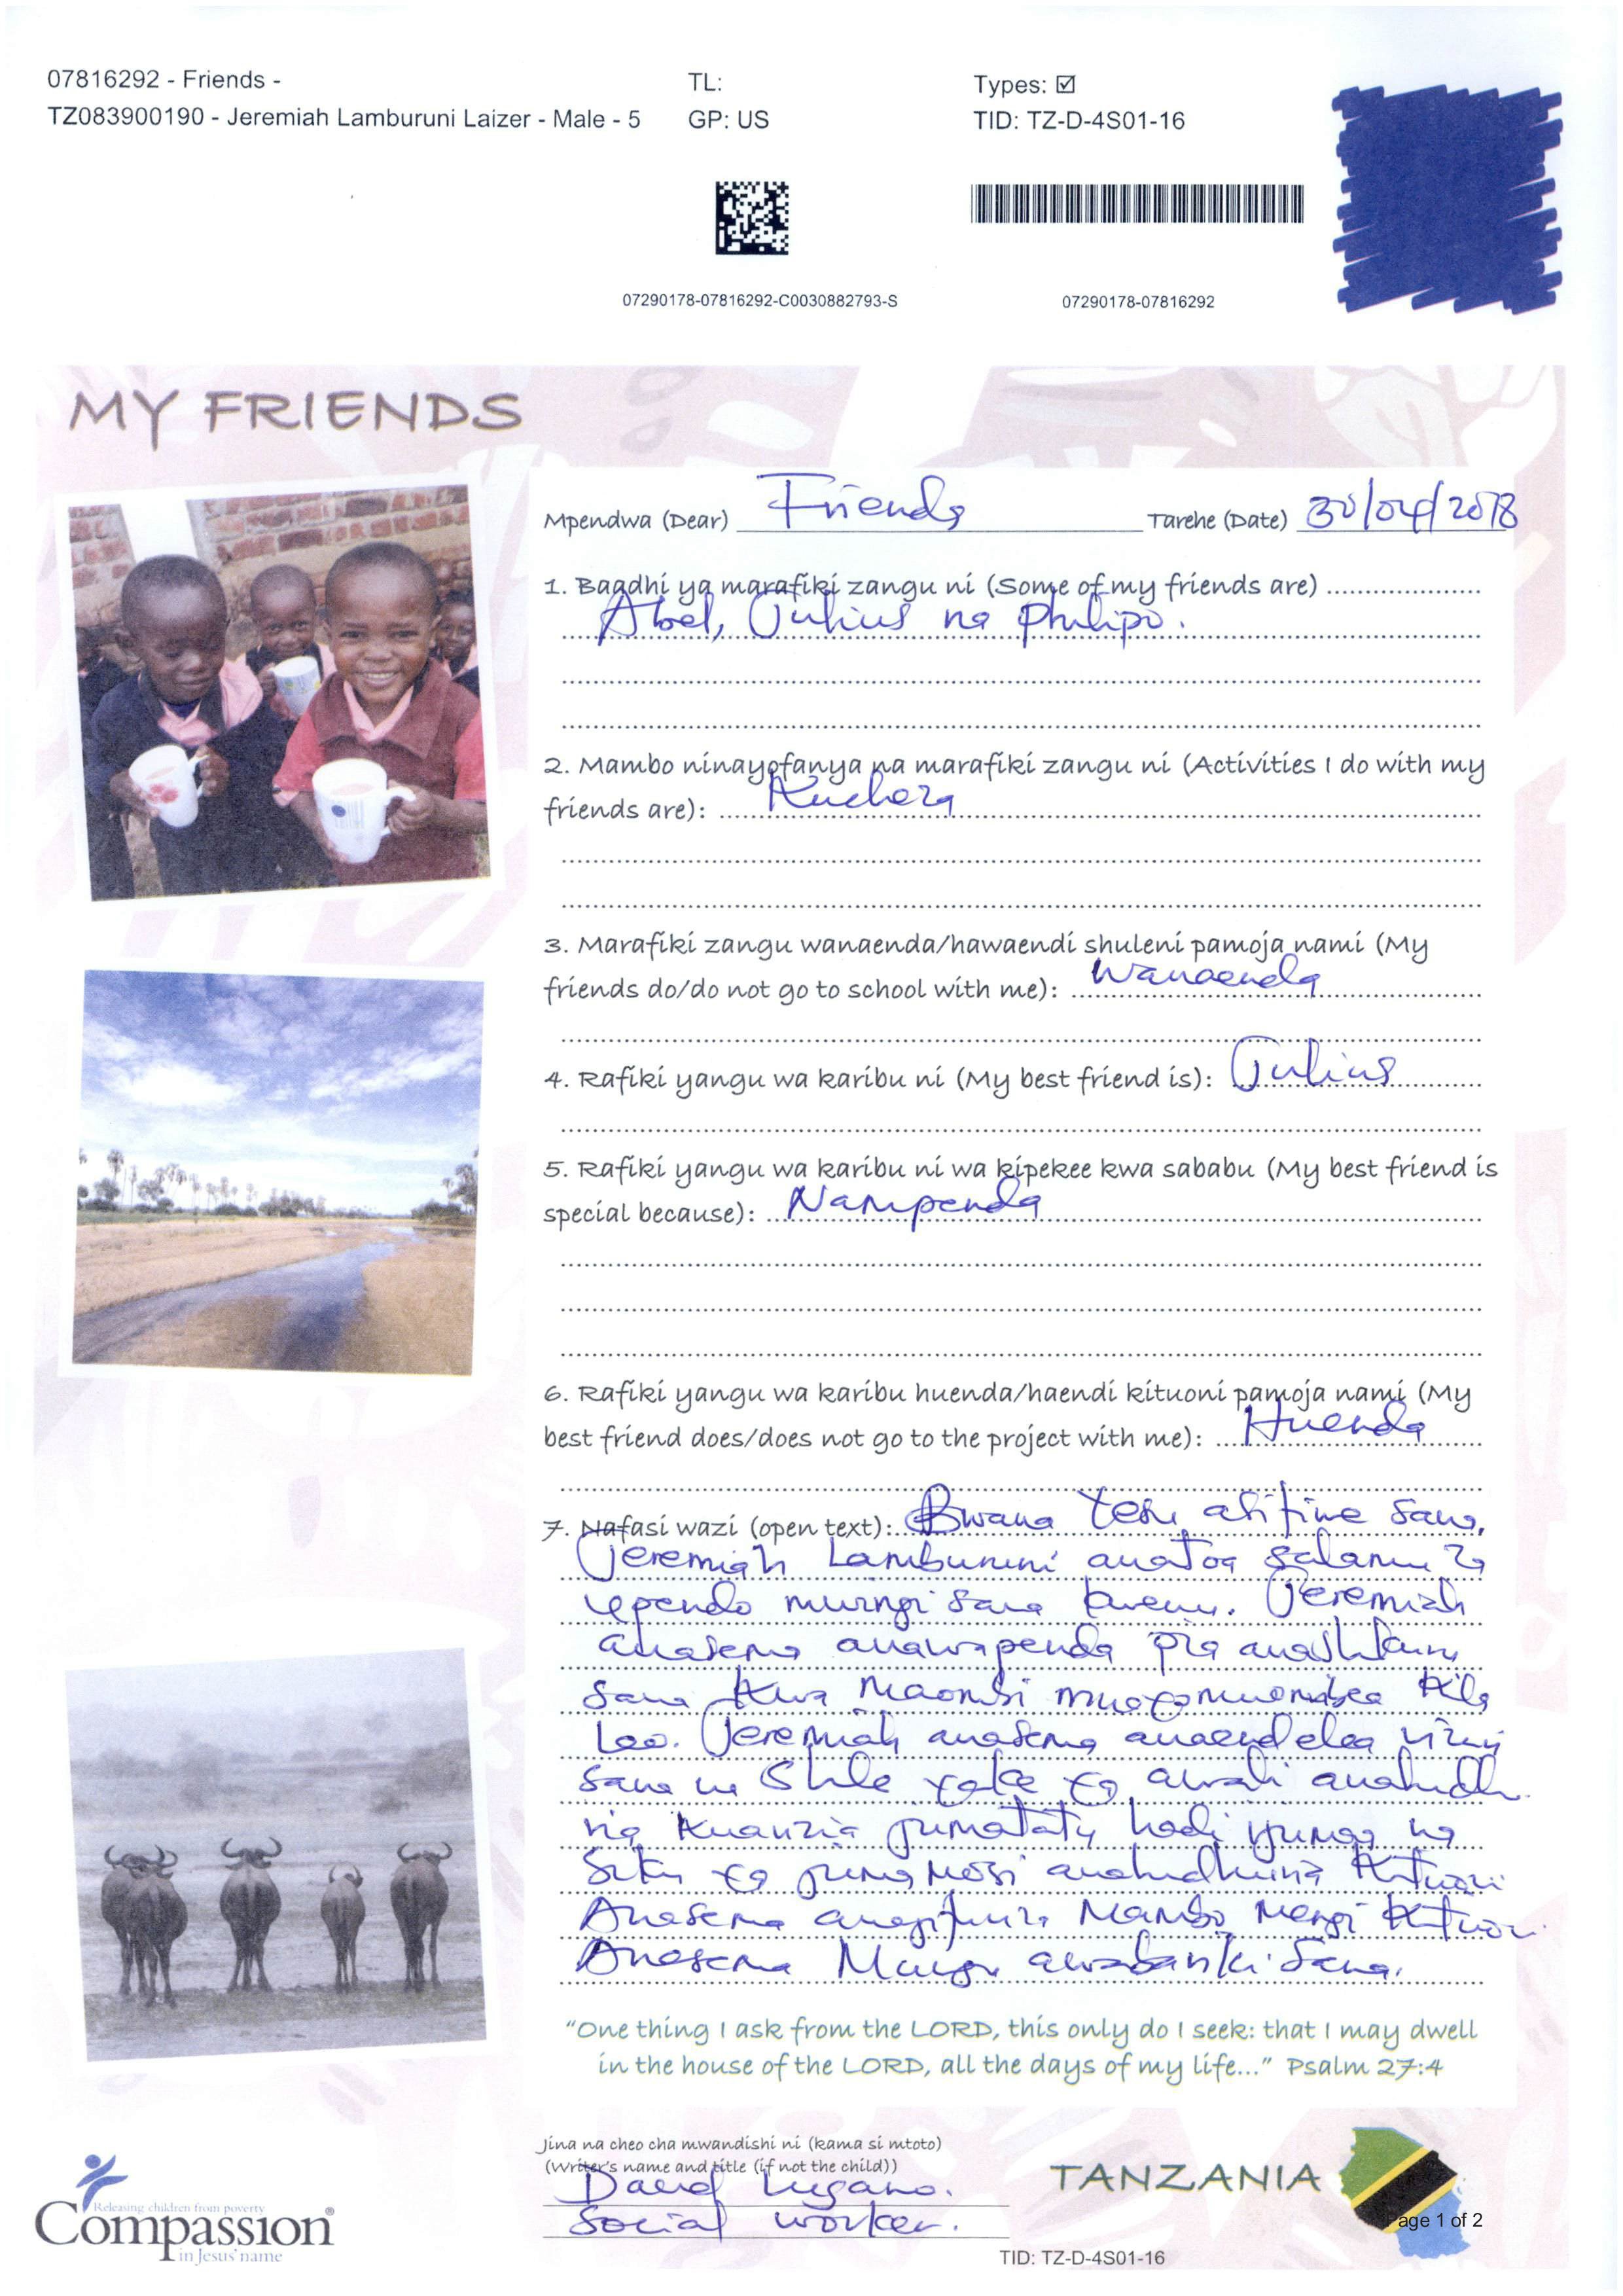 07816292 - Friends -
TZ083900190 - Jeremiah Lamburuni Laizer - Male - 5
TL:
GP: US
Types: ☑
TID: TZ-D-4S01-16
07290178-07816292-C0030882793-S
07290178-07816292
MY FRIENDS
Mpendwa (Dear) Friends Tarehe (Date) 30/04/2018
1. Baadhi ya marafiki zangu ni (Some of my friends are)
Abel, Julius na Philipo.
2. Mambo ninayofanya na marafiki zangu ni (Activities I do with my
friends are): Kucheza
3. Marafiki zangu wanaenda/hawaendi shuleni pamoja nami (My
friends do/do not go to school with me): Wanaenda
4. Rafiki yangu wa karibu ni (My best friend is): Julius
5. Rafiki yangu wa karibu ni wa kipekee kwa sababu (My best friend is
special because): Nampenda
6. Rafiki yangu wa karibu huenda/haendi kituoni pamoja nami (My
best friend does/does not go to the project with me): Huenda
7. Nafasi wazi (open text): Bwana Yesu asifiwe sana,
Jeremiah Lamburuni anatoa salamu za
upendo mwingi sana kwenu. Jeremiah
anasema anawapenda pia anashukuru
sana kwa maombi mnayomuombea kila
leo. Jeremiah anasema anaendelea vizuri
sana na shule yake ya awali anahudhu
ria kuanzia jumatatu hadi ijumaa na
siku ya jumamosi anahudhuria kituoni
Anasema anajifunza mambo mengi kituoni
Anasema Mungu awabariki sana.
"One thing I ask from the LORD, this only do I seek: that I may dwell
in the house of the LORD, all the days of my life..." Psalm 27:4
Jina na cheo cha mwandishi ni (kama si mtoto)
(Writer's name and title (if not the child))
David Lugano.
Social worker.
Releasing children from poverty
Compassion®
in Jesus' name
TANZANIA
Page 1 of 2
TID: TZ-D-4S01-16